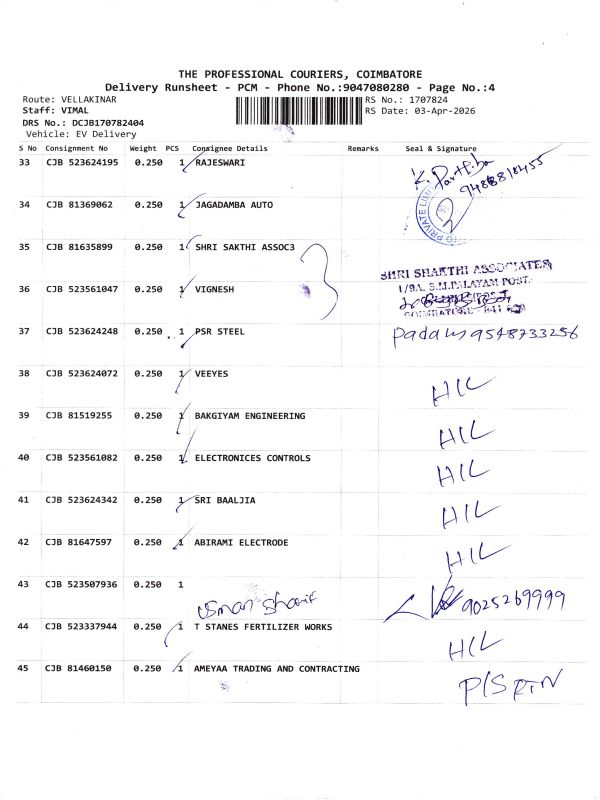 THE PROFESSIONAL COURIERS, COIMBATORE
Delivery Runsheet - PCM - Phone No.:9047080280 - Page No.:4
Route: VELLAKINAR RS No.: 1707824
Staff: VIMAL RS Date: 03-Apr-2026
DRS No.: DCJB170782404
Vehicle: EV Delivery
S No Consignment No Weight PCS Consignee Details Remarks Seal & Signature
33 CJB 523624195 0.250 1 RAJESWARI K. Parthiba
9488818455
34 CJB 81369062 0.250 1 JAGADAMBA AUTO
35 CJB 81635899 0.250 1 SHRI SAKTHI ASSOC3
SHRI SHAKTHI ASSOCIATES
36 CJB 523561047 0.250 1 VIGNESH 1/9A, S.U.PALAYAM POST,
37 CJB 523624248 0.250 1 PSR STEEL Padam 9548733256
38 CJB 523624072 0.250 1 VEEYES H/L
39 CJB 81519255 0.250 1 BAKGIYAM ENGINEERING H/L
40 CJB 523561082 0.250 1 ELECTRONICES CONTROLS H/L
41 CJB 523624342 0.250 1 SRI BAALJIA H/L
42 CJB 81647597 0.250 1 ABIRAMI ELECTRODE H/L
43 CJB 523507936 0.250 1
usman sharif 9025269999
44 CJB 523337944 0.250 1 T STANES FERTILIZER WORKS H/L
45 CJB 81460150 0.250 1 AMEYAA TRADING AND CONTRACTING P/S RTN